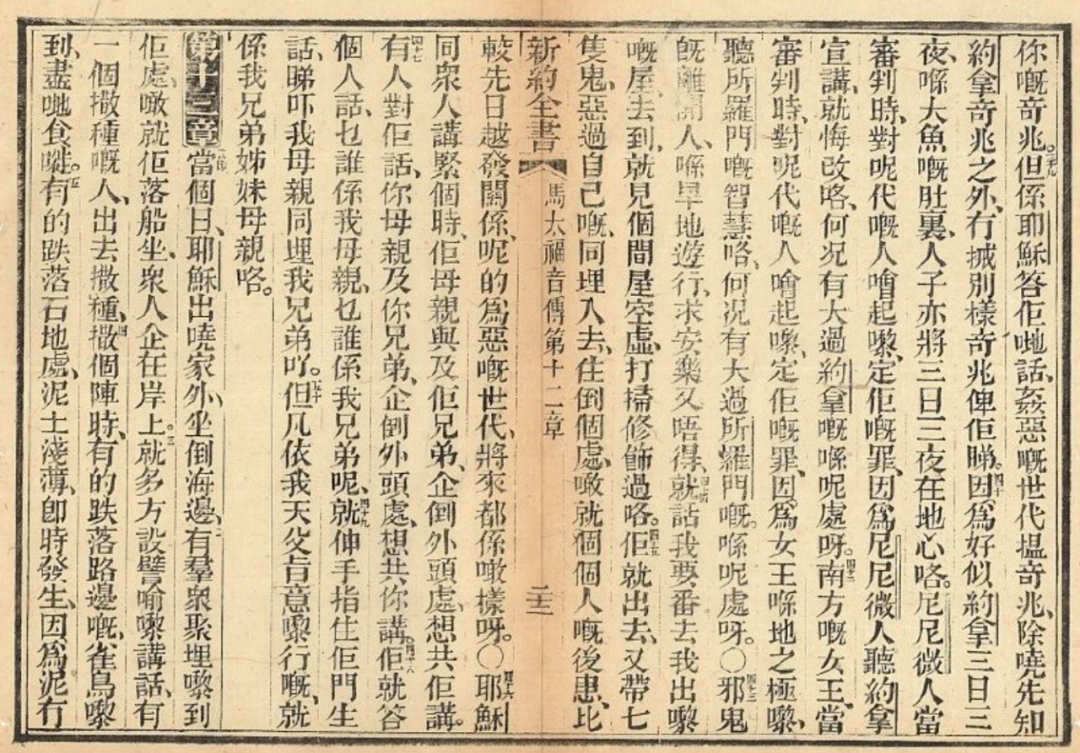 你嘅奇兆。三十九但係耶穌答佢哋話、姦惡嘅世代搵奇兆、除嘵先知
約拿奇兆之外、冇掝別樣奇兆俾佢睇。四十因爲好似約拿三日三
夜、喺大魚嘅肚裏、人子亦將三日三夜在地心咯。尼尼微人當
審判時、對呢代嘅人噲起嚟、定佢嘅罪、因爲尼尼微人聽約拿
宣講、就悔改咯、何況有大過約拿嘅喺呢處呀。四二南方嘅女王、當
審判時、對呢代嘅人噲起嚟、定佢嘅罪、因爲女王喺地之極嚟、
聽所羅門嘅智慧咯、何況有大過所羅門嘅。喺呢處呀。〇四三邪鬼
旣離開人、喺旱地遊行、求安樂又唔得、四四就話我要番去我出嚟
嘅屋、去到、就見個間屋空虛、打掃修飾過咯。四五佢就出去、又帶七
隻鬼、惡過自己嘅、同埋入去、住倒個處、噉就個個人嘅後患、比
新約全書 馬太福音傳第十二章 二十三
較先日越發關係、呢的爲惡嘅世代、將來都係噉樣呀。〇四六耶穌
同衆人講緊個時、佢母親與及佢兄弟、企倒外頭處、想共佢講。
四七有人對佢話、你母親及你兄弟、企倒外頭處、想共你講。四十八佢就答
個人話、乜誰係我母親、乜誰係我兄弟呢、四九就伸手指住佢門生
話、睇吓我母親同埋我兄弟吖。五十但凡依我天父旨意嚟行嘅、就
係我兄弟姊妹母親咯。
第十三章 一當個日、耶穌出嘵家外、坐倒海邊、二有羣衆聚埋嚟到
佢處、噉就佢落船坐、衆人企在岸上。三就多方設譬喻嚟講話、有
一個撒種嘅人、出去撒種、四撒個陣時、有的跌落路邊嘅、雀鳥嚟
到、盡哋食嘥。五有的跌落石地處、泥土淺薄、卽時發生、因爲泥冇